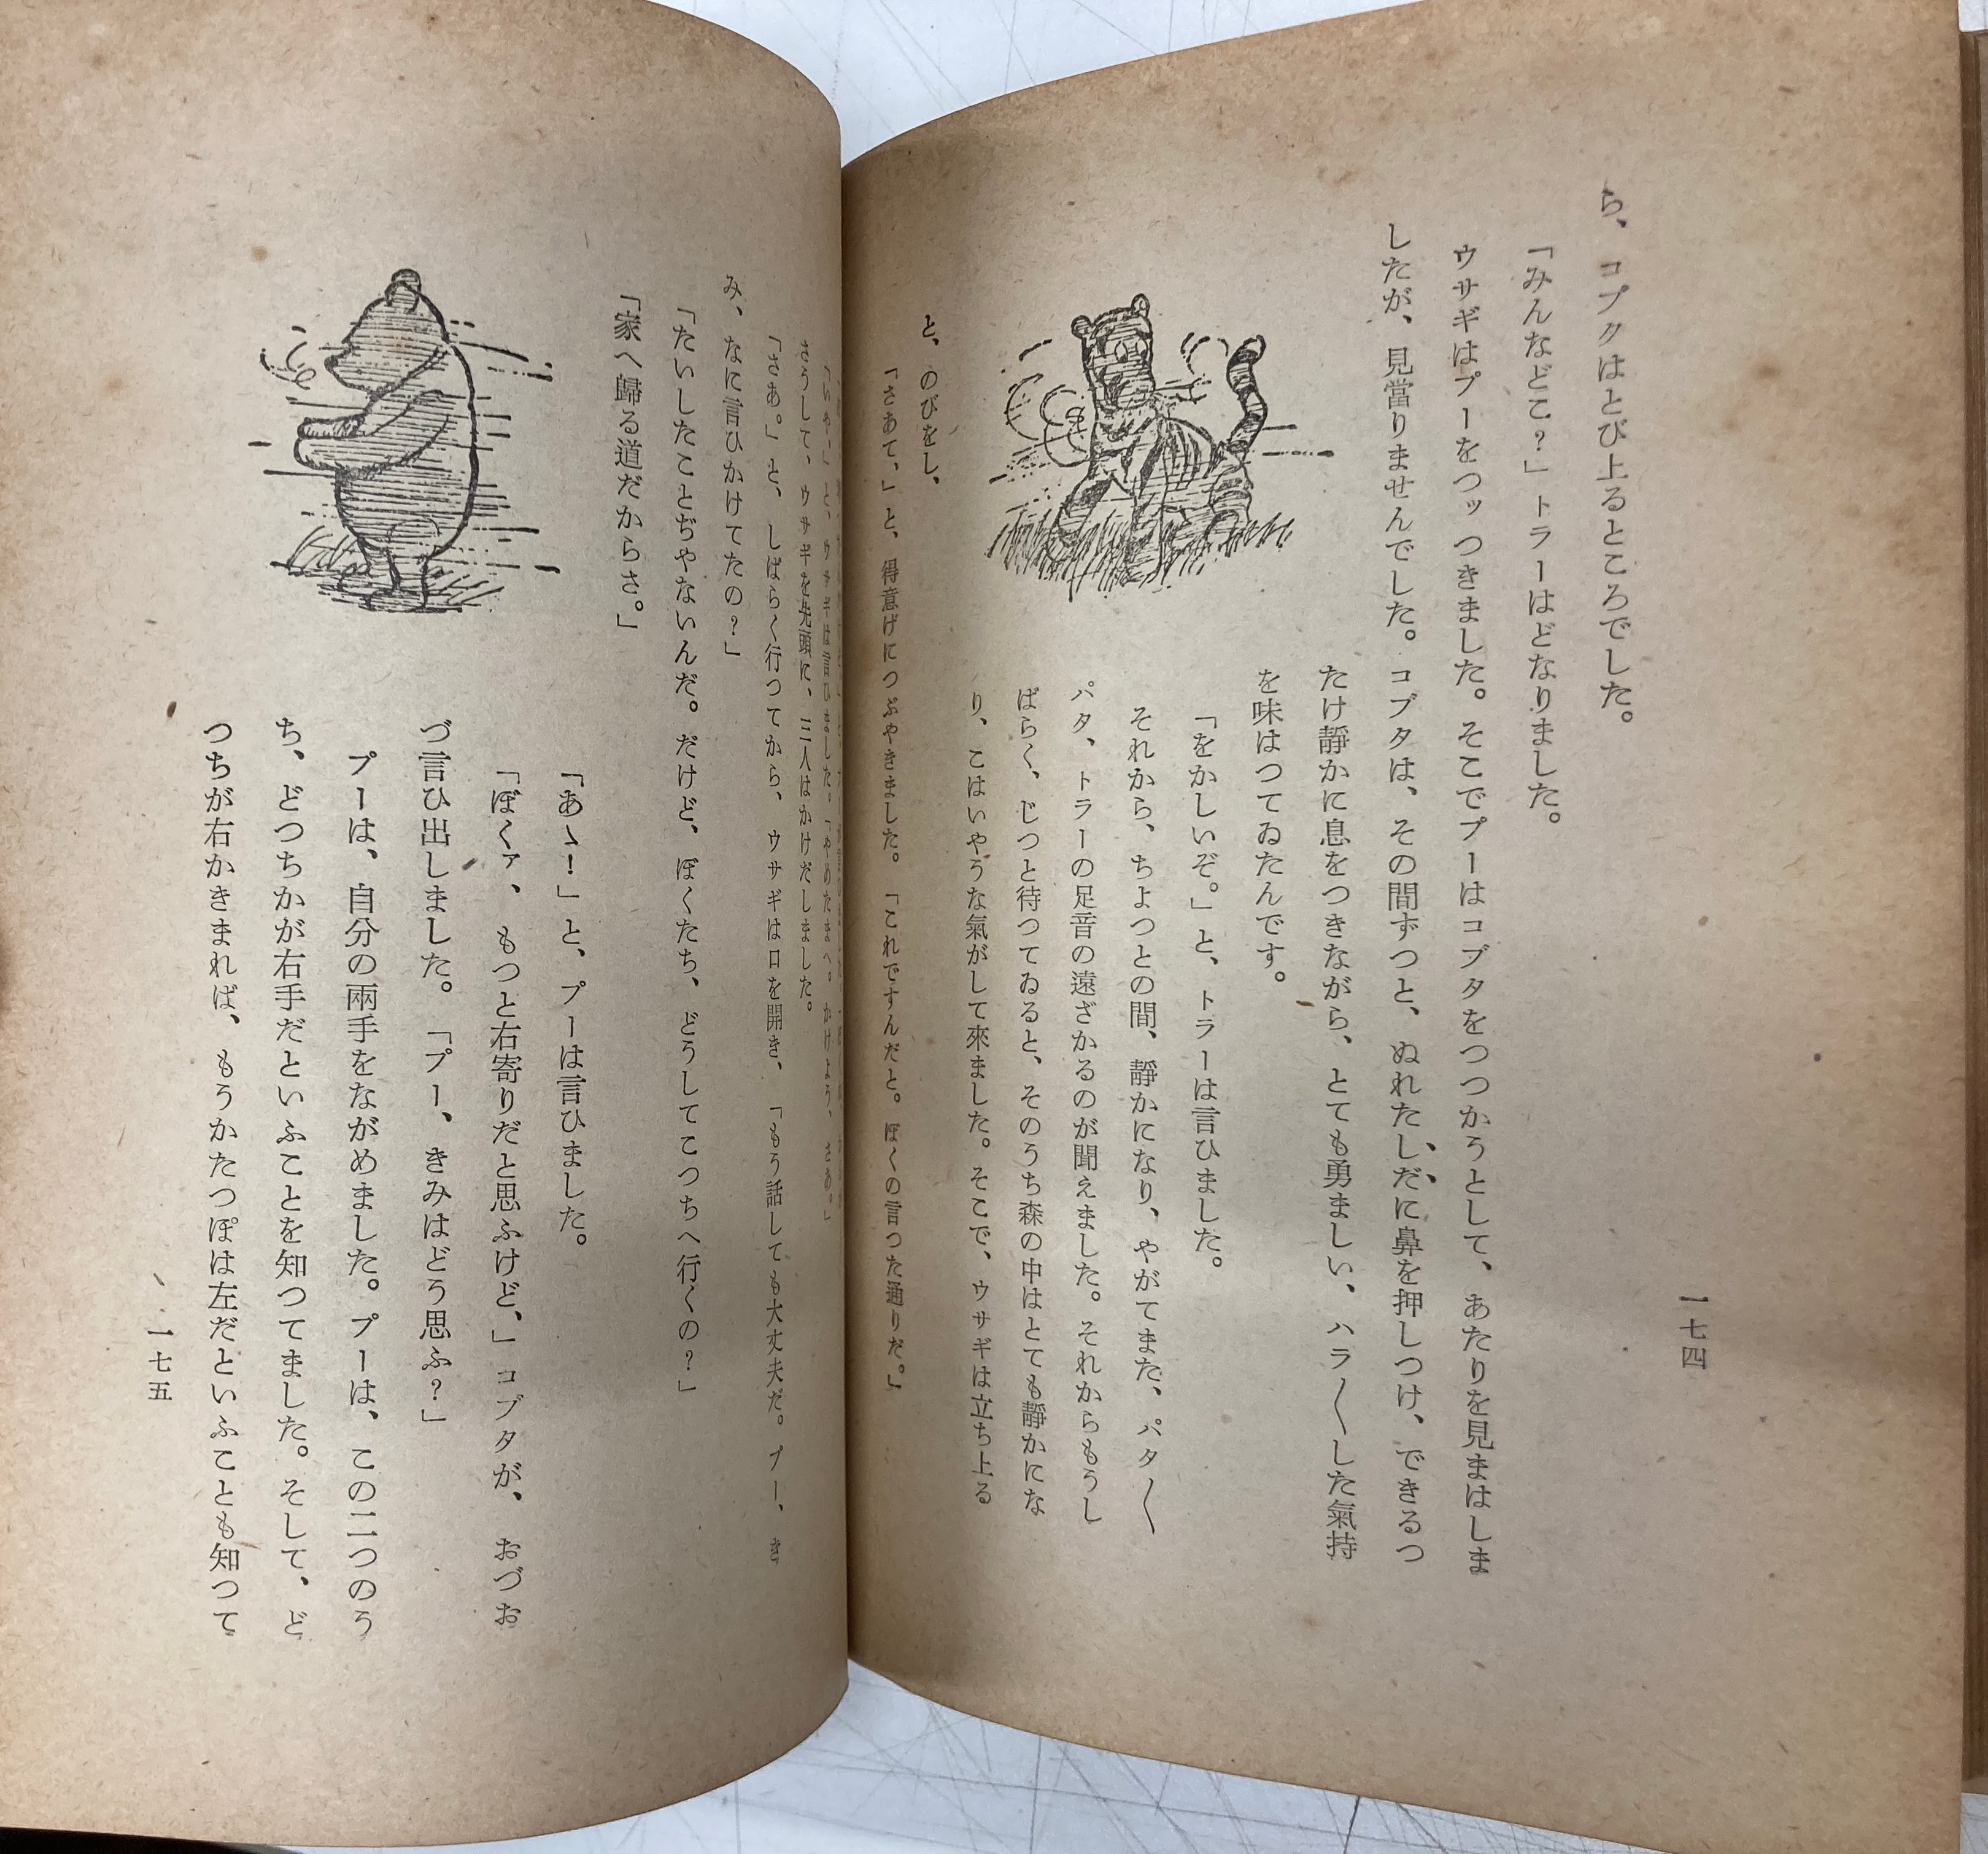 ら、コブタはとび上るところでした。
「みんなどこ？」トラーはどなりました。
ウサギはプーをつッつきました。そこでプーはコブタをつつかうとして、あたりを見まはしま
したが、見當りませんでした。コブタは、その間ずつと、ぬれたしだに鼻を押しつけ、できるつ
たけ靜かに息をつきながら、とても勇ましい、ハラ〱した氣持
を味はつてゐたんです。
「をかしいぞ。」と、トラーは言ひました。
それから、ちよつとの間、靜かになり、やがてまた、パタ〱
パタ、トラーの足音の遠ざかるのが聞えました。それからもうし
ばらく、じつと待つてゐると、そのうち森の中はとても靜かにな
り、こはいやうな氣がして來ました。そこで、ウサギは立ち上る
と、のびをし、
「さあて、」と、得意げにつぶやきました。「これですんだと。ぼくの言つた通りだ。」
一七四
「いや、」と、ウサギは言ひました。「やめたまへ。かけよう、さあ。」
さうして、ウサギを先頭に、三人はかけだしました。
「さあ。」と、しばらく行つてから、ウサギは口を開き、「もう話しても大丈夫だ。プー、き
み、なに言ひかけてたの？」
「たいしたことぢやないんだ。だけど、ぼくたち、どうしてこつちへ行くの？」
「家へ歸る道だからさ。」
「あゝ！」と、プーは言ひました。
「ぼくァ、もつと右寄りだと思ふけど、」コブタが、おづお
づ言ひ出しました。「プー、きみはどう思ふ？」
プーは、自分の兩手をながめました。プーは、この二つのう
ち、どつちかが右手だといふことを知つてました。そして、ど
つちが右かきまれば、もうかたつぽは左だといふことも知つて
一七五